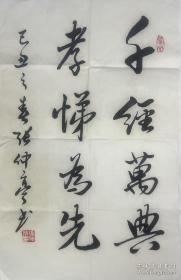 千經萬典
孝悌為先
己丑之春張仲亭書